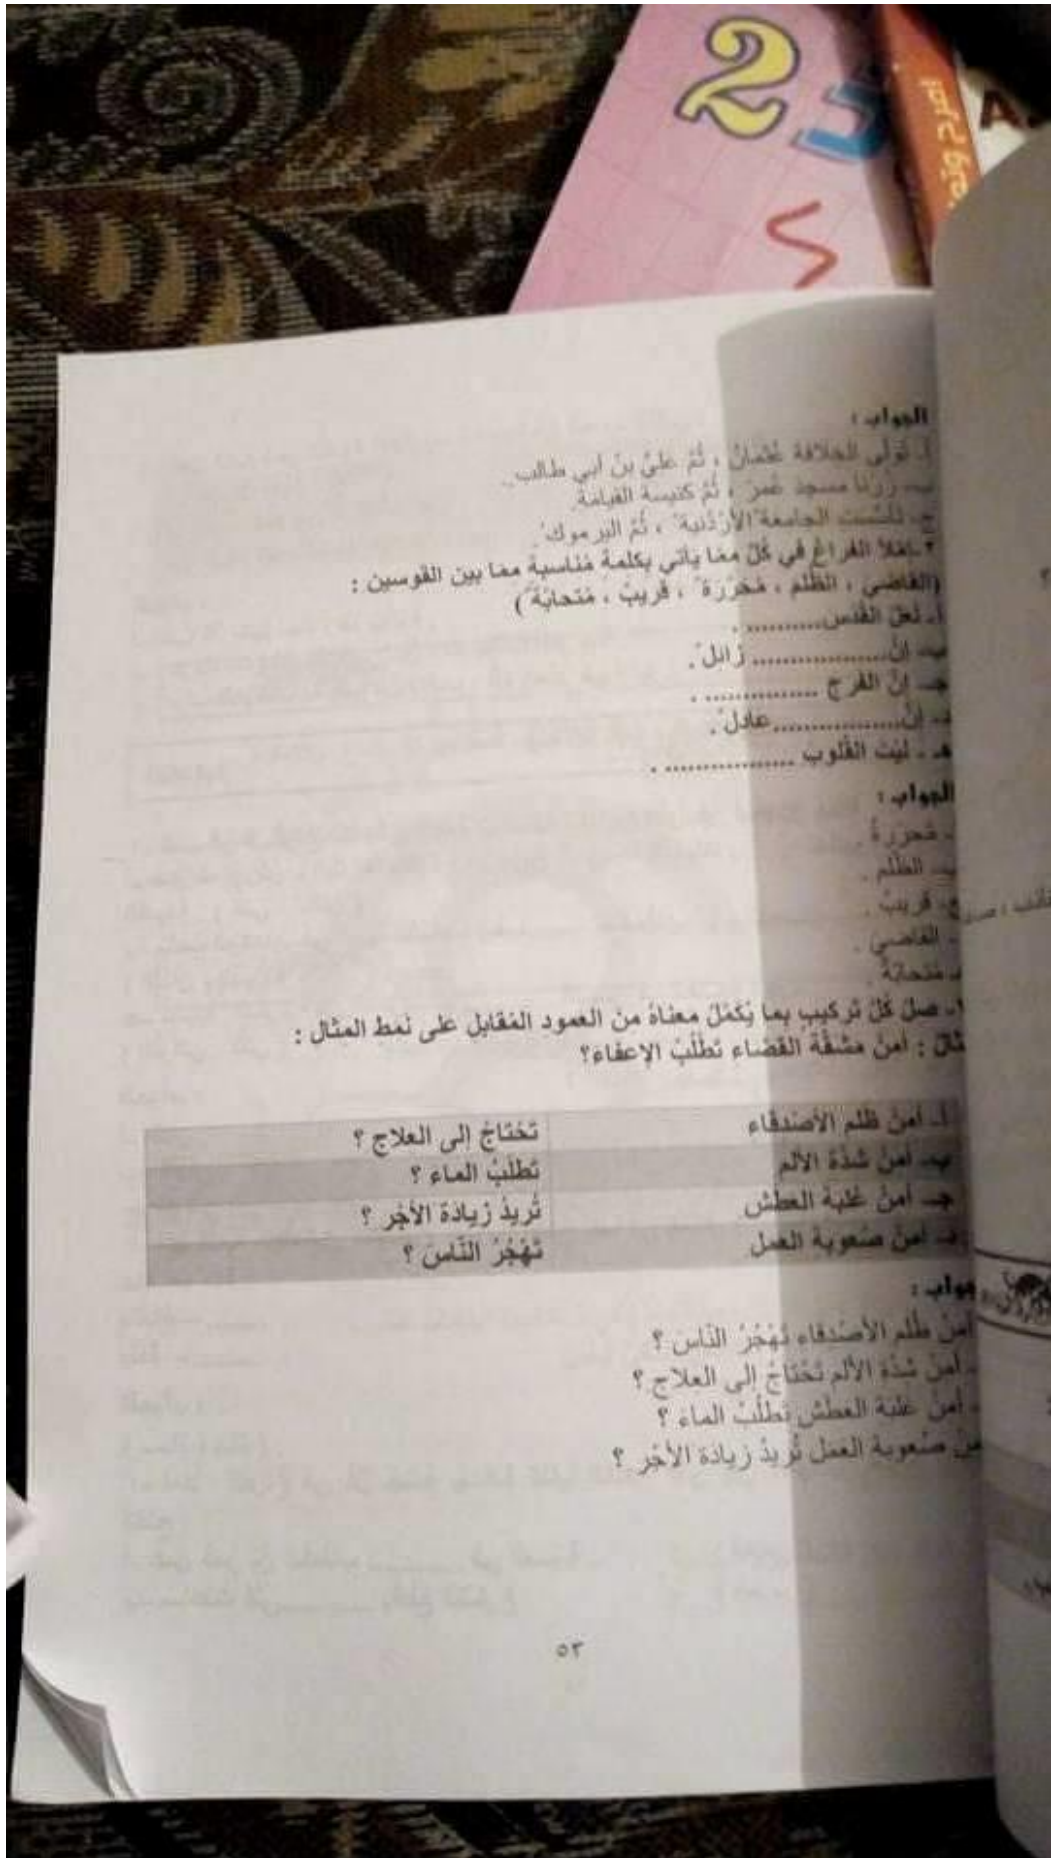 2
افرح وتع
الجواب :
أ- تولى الخلافة عُثمانُ ، ثُمَّ عليُّ بنُ أبي طالب.
ب- زُرْنا مسجدَ عُمرَ ، ثُمَّ كنيسةَ القيامة.
ج- تأسَّست الجامعة الأرْدُنية ، ثُمَّ اليرموك.
٢- املأ الفراغ في كُلّ ممّا يأتي بكلمة مُناسبة ممّا بين القوسين :
(القاضي ، الظُّلم ، مُحرَّرة ، قريبٌ ، مُتحابَّة)
أ- لعلّ القُدس.......... .
ب- إنَّ................. زائلٌ.
جـ- إنَّ الفرج ............... .
د- إنَّ.................عادلٌ.
هـ - ليْت القُلوب ................. .
الجواب :
- مُحرَّرةٌ .
ب- الظُّلم .
ج- قريبٌ .
- القاضيَ .
- مُتحابّةٌ .
- صلْ كُلّ تركيبٍ بما يُكمّلُ معناهُ من العمود المُقابل على نَمط المثال :
ثال : أمنْ مشقَّة القضاء تطلُبُ الإعفاءَ؟
أ- أمنْ ظُلم الأصْدقاء تحْتاجُ إلى العلاج ؟
ب- أمنْ شدَّة الألم تطلُبُ الماء ؟
جـ- أمنْ غلبة العطش تُريدُ زيادة الأجْر ؟
د- أمنْ صُعوبة العمل تهْجُرُ النّاسَ ؟
جواب:
أمنْ ظُلم الأصْدقاء تهْجُرُ النّاسَ ؟
- أمنْ شدَّة الألم تحْتاجُ إلى العلاج ؟
- أمنْ غلبة العطش تطلُبُ الماءَ ؟
منْ صُعوبة العمل تُريدُ زيادة الأجْر ؟
٥٣